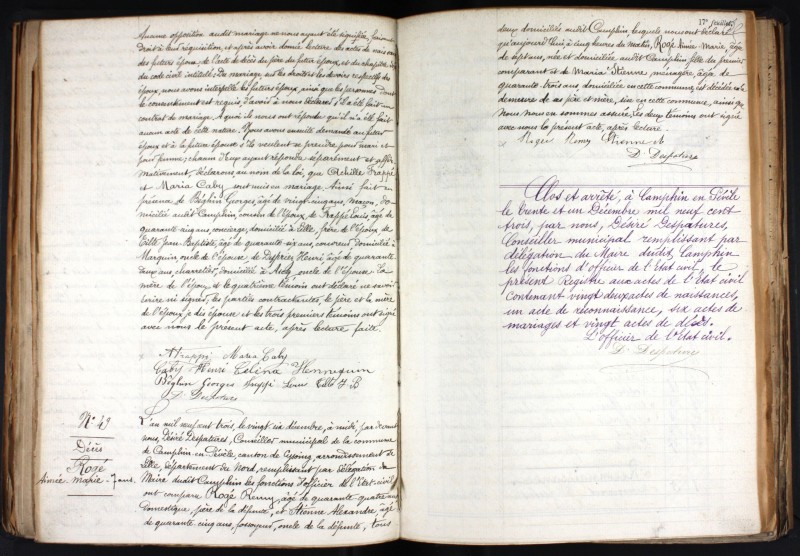 Aucune opposition audit mariage ne nous ayant été signifiée, faisons
droit à leur réquisition, et après avoir donné lecture des actes de naissance
des futurs époux, de l'acte de décès du père du futur époux, et du chapitre six
du code civil intitulé: Du mariage, sur les droits et les devoirs respectifs des
époux, nous avons interpellé les futurs époux, ainsi que les personnes dont
le consentement est requis d'avoir à nous déclarer s'il a été fait un
contrat de mariage. A quoi ils nous ont répondu qu'il n'a été fait
aucun acte de cette nature. Nous avons ensuite demandé au futur
époux et à la future épouse s'ils veulent se prendre pour mari et
pour femme; chacun d'eux ayant répondu séparément et affir-
mativement, déclarons au nom de la loi, que Achille Frappé
et Maria Caby sont unis en mariage. Ainsi fait en
présence de Béghin Georges, âgé de vingt-cinq ans, maçon, do-
micilié audit Camphin, cousin de l'époux, de Frappé Louis, âgé de
quarante-cinq ans, concierge, domicilié à Lille, frère de l'époux, de
Jean-Baptiste, âgé de quarante-six ans, couvreur, domicilié à
oncle de l'épouse, de Henri, âgé de quarante
deux ans, charretier, domicilié à oncle de l'épouse. La
mère de l'époux et le quatrième témoin ont déclaré ne savoir
écrire ni signer, les parties contractantes, le père et la mère
de l'épouse et les trois premiers témoins ont signé
avec nous le présent acte, après lecture faite.
A Frappé Maria Caby
Caby Henri Celina Hennequin
Béghin Georges Frappé Louis J B
D. Despatures
N° 43
Décès
Rogé
Aimée-Marie - 7 ans.
L'an mil neuf cent trois, le vingt six décembre, à midi, par devant
nous, Désiré Despatures, Conseiller municipal de la commune
de Camphin en Pévèle, canton de Cysoing, arrondissement de
Lille, département du Nord, remplissant par délégation du
Maire dudit Camphin les fonctions d'officier de l'Etat-civil
ont comparu Rogé Remy, âgé de quarante quatre ans
domestique, père de la défunte, et Stienne Alexandre, âgé
de quarante cinq ans, fossoyeur, oncle de la défunte, tous
17e feuillet
deux domiciliés audit Camphin, lesquels nous ont déclaré
qu'aujourd'hui, à cinq heures du matin, Rogé Aimée-Marie, âgée
de sept ans, née et domiciliée audit Camphin, fille du premier
comparant et de Maria Stienne, ménagère, âgée de
quarante trois ans domiciliée en cette commune, est décédée en la
demeure de ses père et mère, sise en cette commune, ainsi que
Nous nous en sommes assuré. Les deux témoins ont signé
avec nous le présent acte, après lecture.
Roger Remy Stienne A
D. Despatures
Clos et arrêté, à Camphin en Pévèle
le trente et un Décembre mil neuf cent
trois, par nous, Désiré Despatures,
Conseiller municipal remplissant par
délégation du Maire dudit Camphin
les fonctions d'officier de l'Etat civil, le
présent Registre aux actes de l'Etat civil
contenant vingt deux actes de naissances,
un acte de reconnaissance, six actes de
mariages et vingt actes de décès.
L'officier de l'Etat civil.
D. Despatures